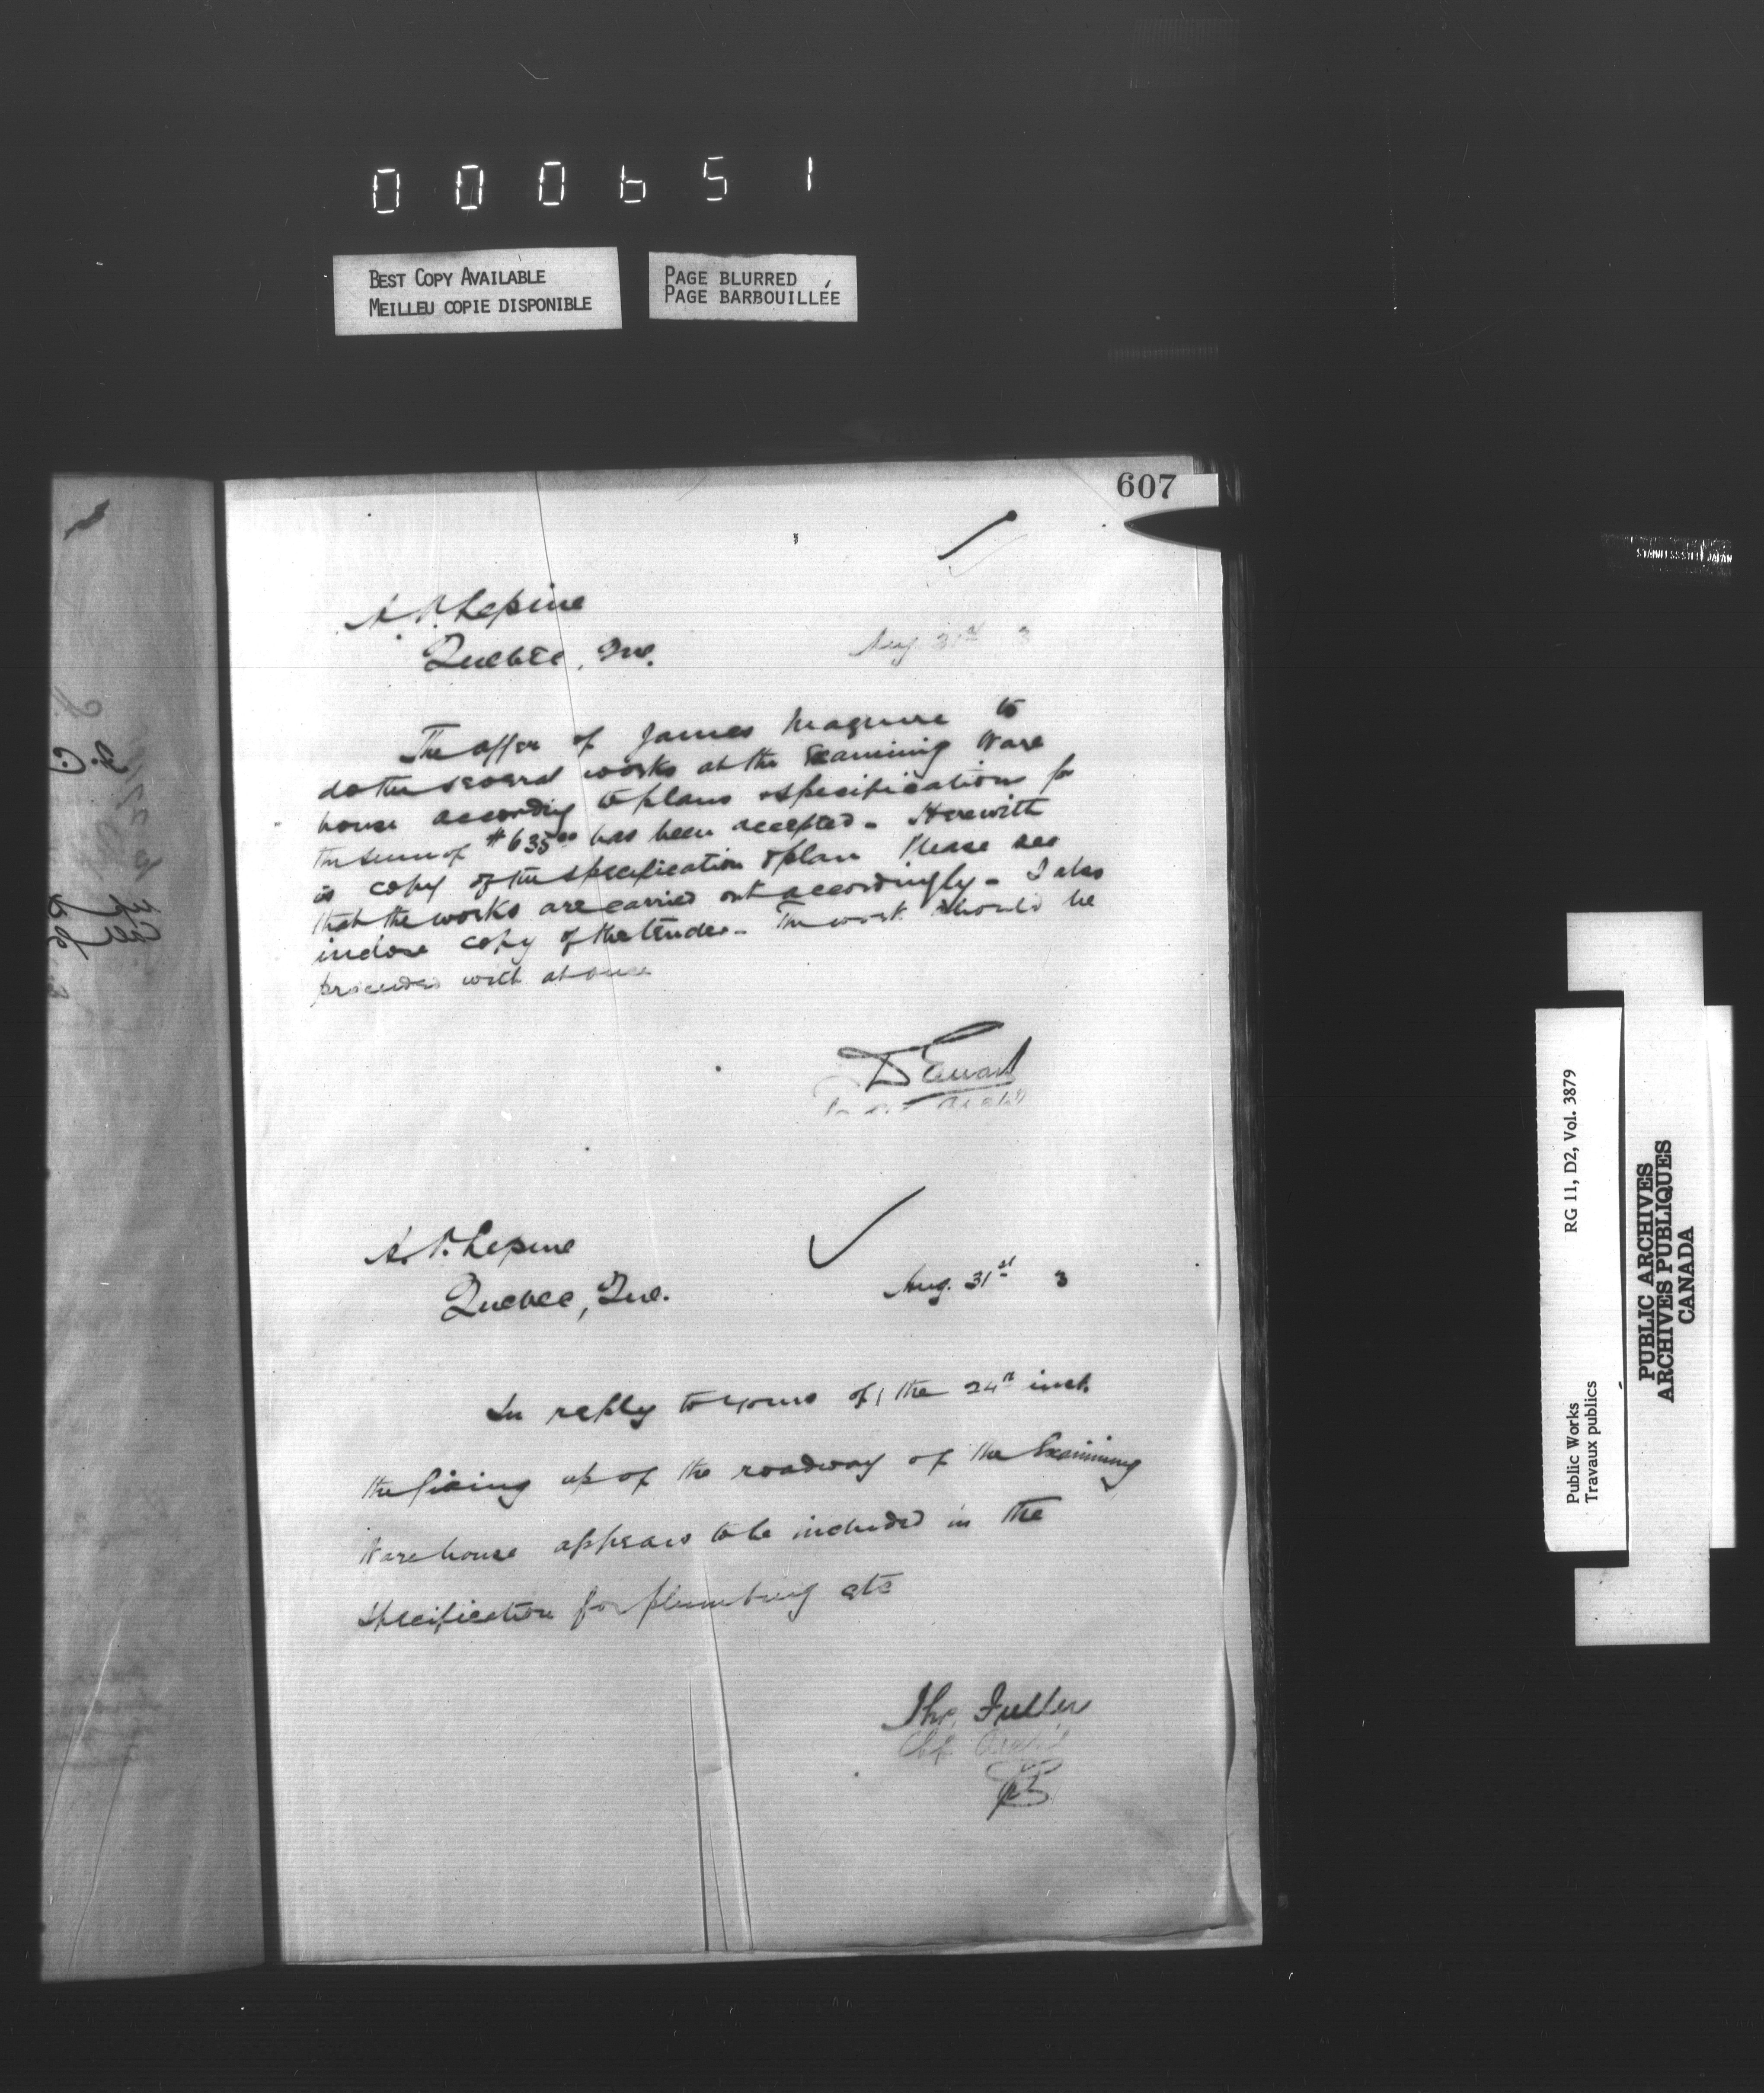 000651
BEST COPY AVAILABLE
MEILLEU COPIE DISPONIBLE
PAGE BLURRED
PAGE BARBOUILLÉE
607
A. P. Lepine
Quebec, Que.
Aug 31st 3
The offer of James Maguire to
do the several works at the Examining Ware
house according to plans & specifications for
the sum of $635.00 has been accepted - Herewith
is copy of the specification & plan Please see
that the works are carried out accordingly - I also
inclose copy of the tender - The work should be
proceeded with at once
D Ewart
A. P. Lepine
Quebec, Que.
Aug. 31st 3
In reply to yours of the 24th inst.
the fixing up of the roadway of the Examining
Warehouse appears to be included in the
specification for plumbing etc
Thos. Fuller
Chf Archt
STAINLESS STEEL JAPAN
RG 11, D2, Vol. 3879
Public Works
Travaux publics
PUBLIC ARCHIVES
ARCHIVES PUBLIQUES
CANADA